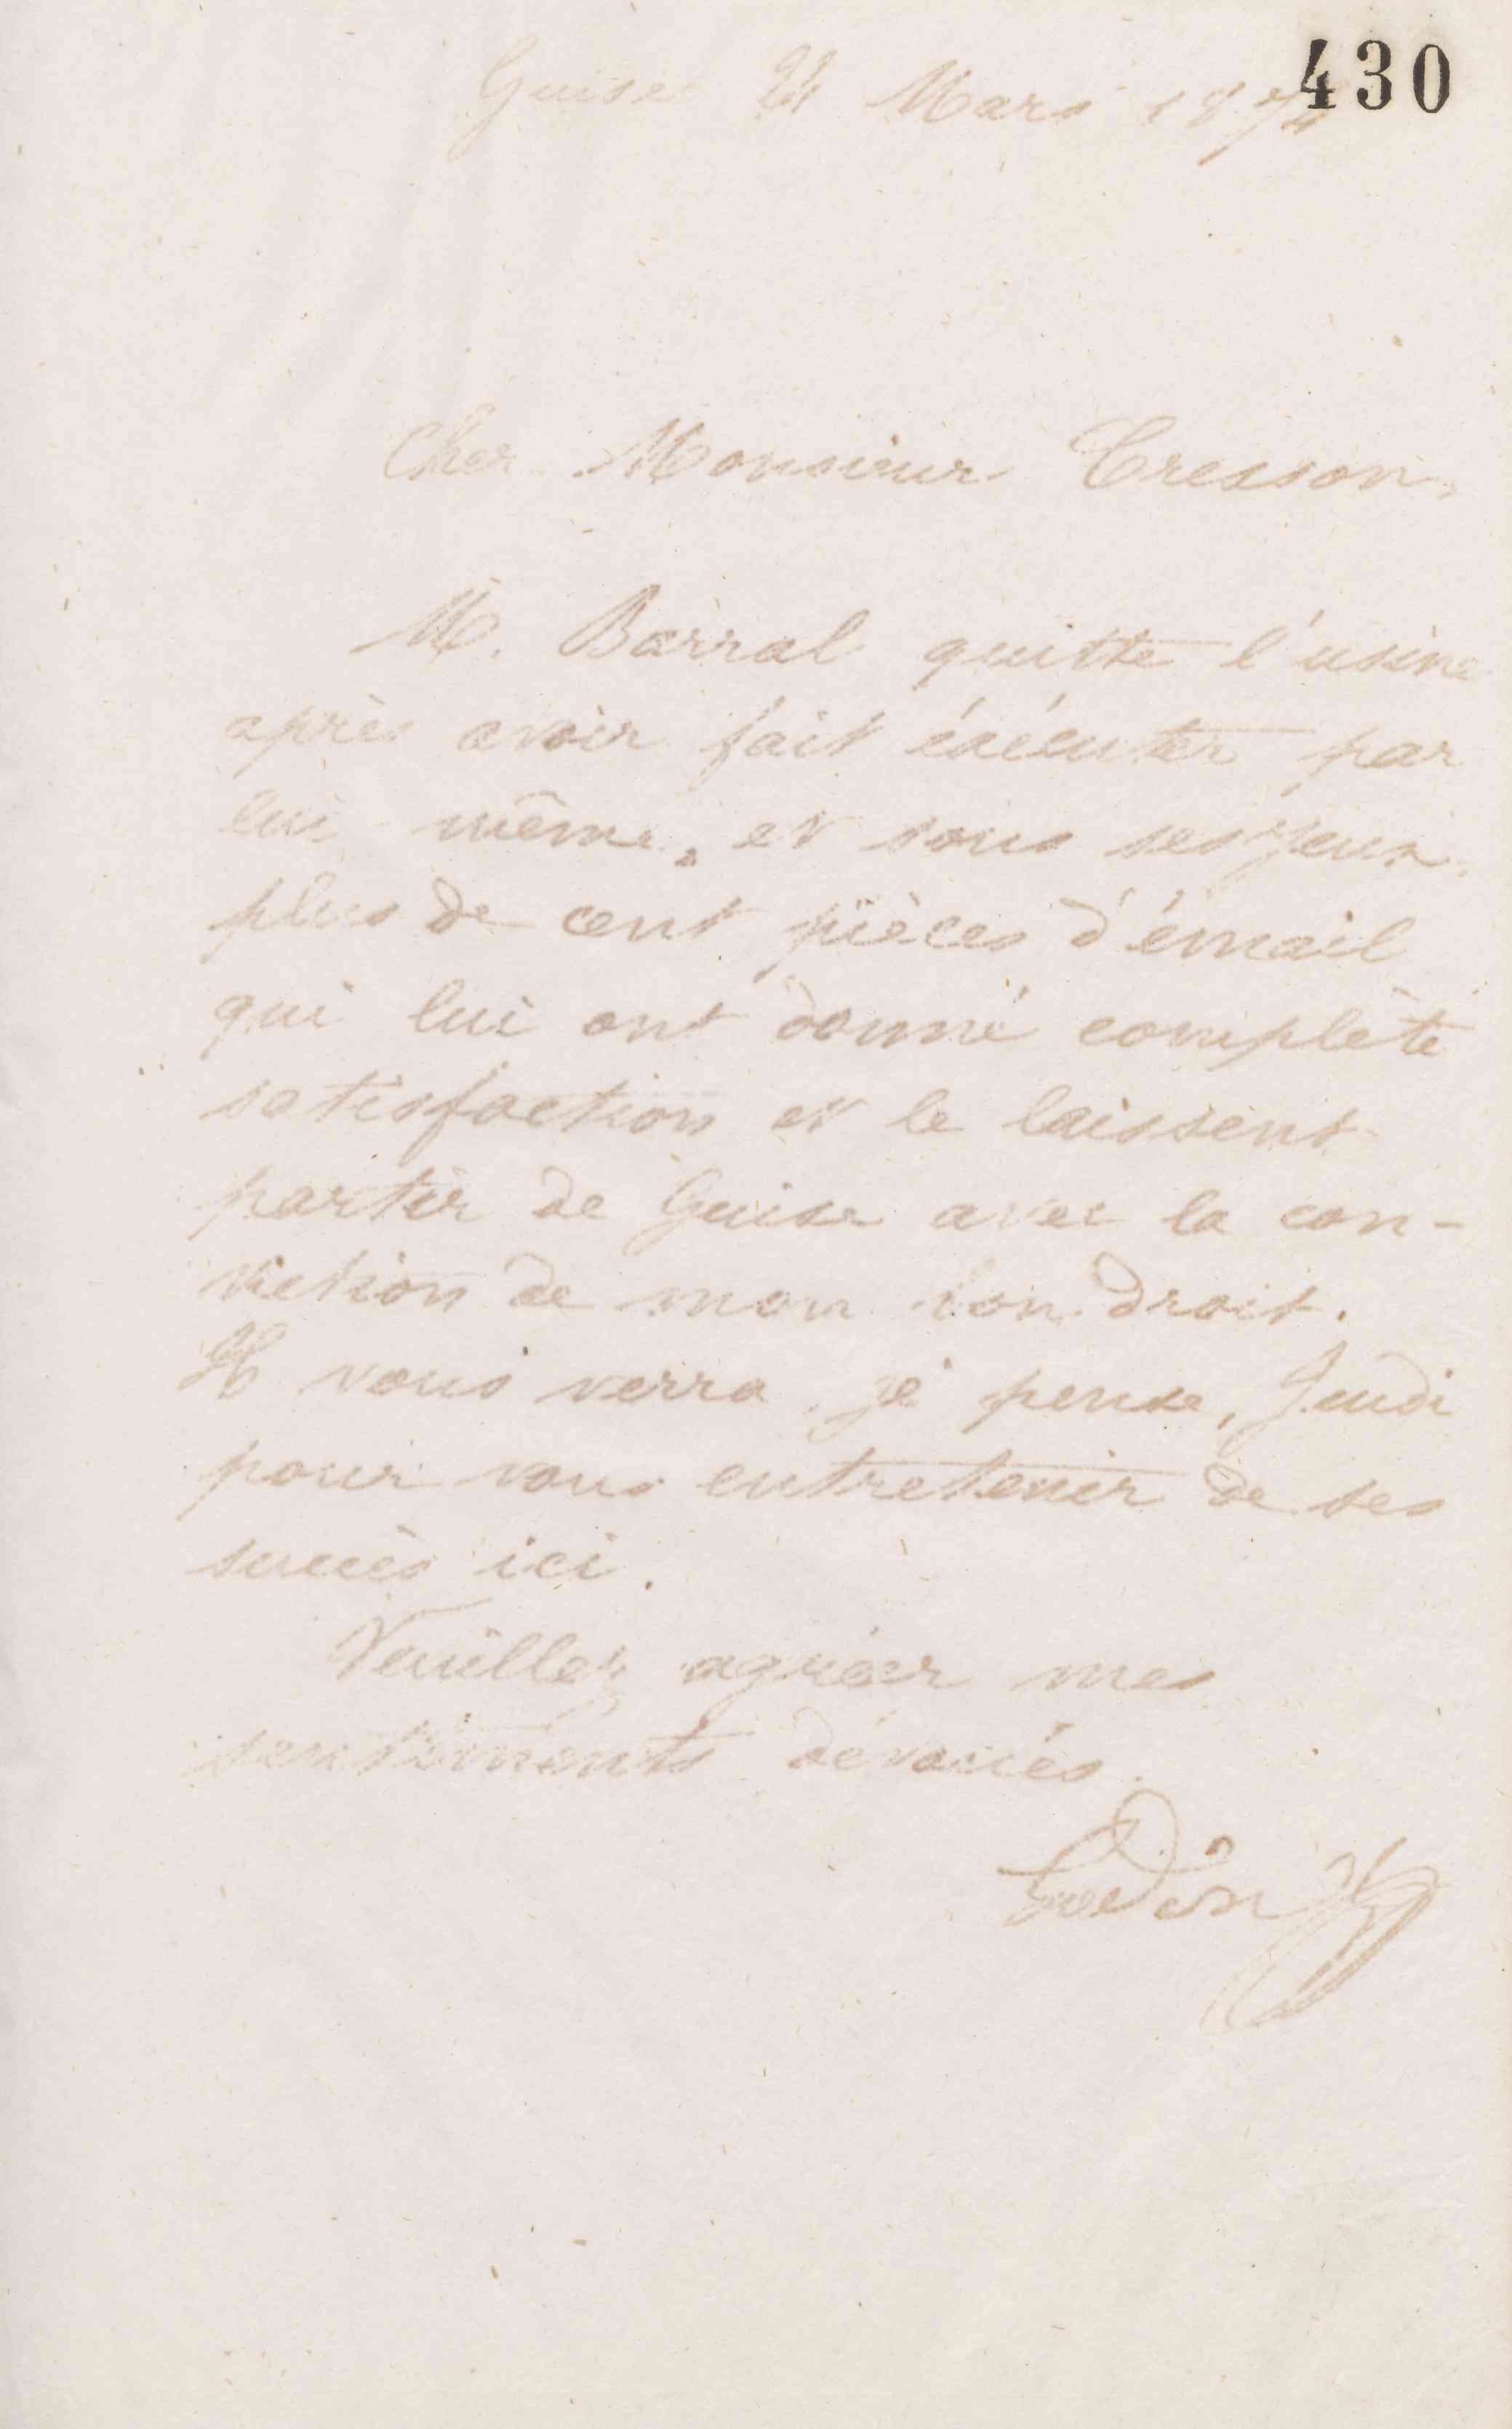 430
Guise 24 Mars 1874
Cher Monsieur Cresson,
M. Barral quitte l'usine
après avoir fait éxécuter par
lui même, et sous ses yeux,
plus de cent pièces d'émail
qui lui ont donné complète
satisfaction et le laissent
partir de Guise avec la con-
viction de mon bon droit.
Il vous verra, je pense, Jeudi
pour vous entretenir de ses
succès ici.
Veuillez agréer mes
sentiments dévoués.
Godin